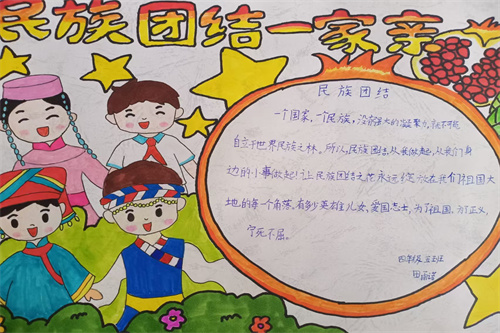 民族团结一家亲
民族团结
一个国家,一个民族,没有强大的凝聚力,就不可能
自立于世界民族之林。所以,民族团结从我做起,从我们身
边的小事做起!让民族团结之花永远绽放在我们祖国大
地的每一个角落。有多少英雄儿女、爱国志士,为了祖国,为了正义,
宁死不屈。
四年级